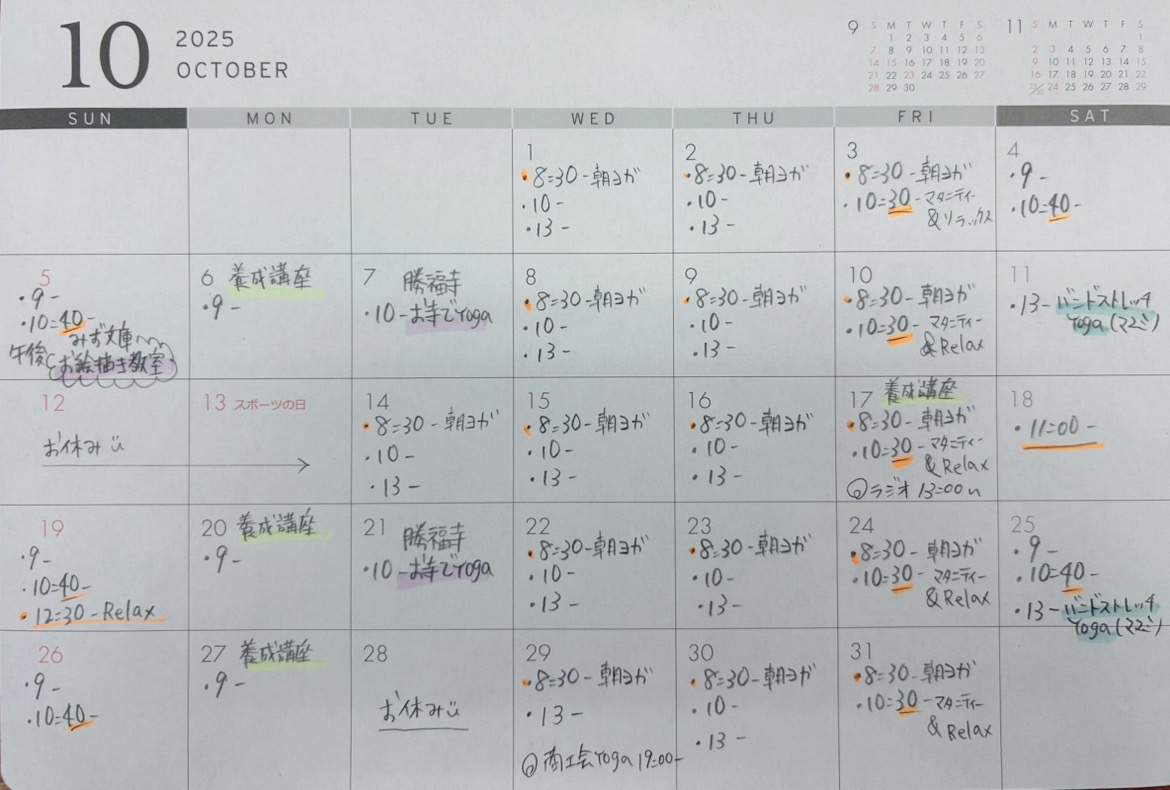 10
2025
OCTOBER
9
S M T W T F S
1 2 3 4 5 6
7 8 9 10 11 12 13
14 15 16 17 18 19 20
21 22 23 24 25 26 27
28 29 30
11
S M T W T F S
1
2 3 4 5 6 7 8
9 10 11 12 13 14 15
16 17 18 19 20 21 22
23/30 24 25 26 27 28 29
SUN MON TUE WED THU FRI SAT
1
・8:30-朝ヨガ
・10-
・13-
2
・8:30-朝ヨガ
・10-
・13-
3
・8:30-朝ヨガ
・10:30-マタニティー
&リラックス
4
・9-
・10:40-
5
・9-
・10:40-
みず文庫
午後 お絵描き教室
6 養成講座
・9-
7 勝福寺
・10-お寺でYoga
8
・8:30-朝ヨガ
・10-
・13-
9
・8:30-朝ヨガ
・10-
・13-
10
・8:30-朝ヨガ
・10:30-マタニティー
&Relax
11
・13-バンドストレッチ
Yoga(ママミ)
12
お休み
13 スポーツの日
14
・8:30-朝ヨガ
・10-
・13-
15
・8:30-朝ヨガ
・10-
・13-
16
・8:30-朝ヨガ
・10-
・13-
17 養成講座
・8:30-朝ヨガ
・10:30-マタニティー
&Relax
ラジオ 13:00
18
・11:00-
19
・9-
・10:40-
・12:30-Relax
20 養成講座
・9-
21 勝福寺
・10-お寺でYoga
22
・8:30-朝ヨガ
・10-
・13-
23
・8:30-朝ヨガ
・10-
・13-
24
・8:30-朝ヨガ
・10:30-マタニティー
&Relax
25
・9-
・10:40-
・13-バンドストレッチ
Yoga(ママミ)
26
・9-
・10:40-
27 養成講座
・9-
28
お休み
29
・8:30-朝ヨガ
・13-
商工会Yoga 19:00-
30
・8:30-朝ヨガ
・10-
・13-
31
・8:30-朝ヨガ
・10:30-マタニティー
&Relax